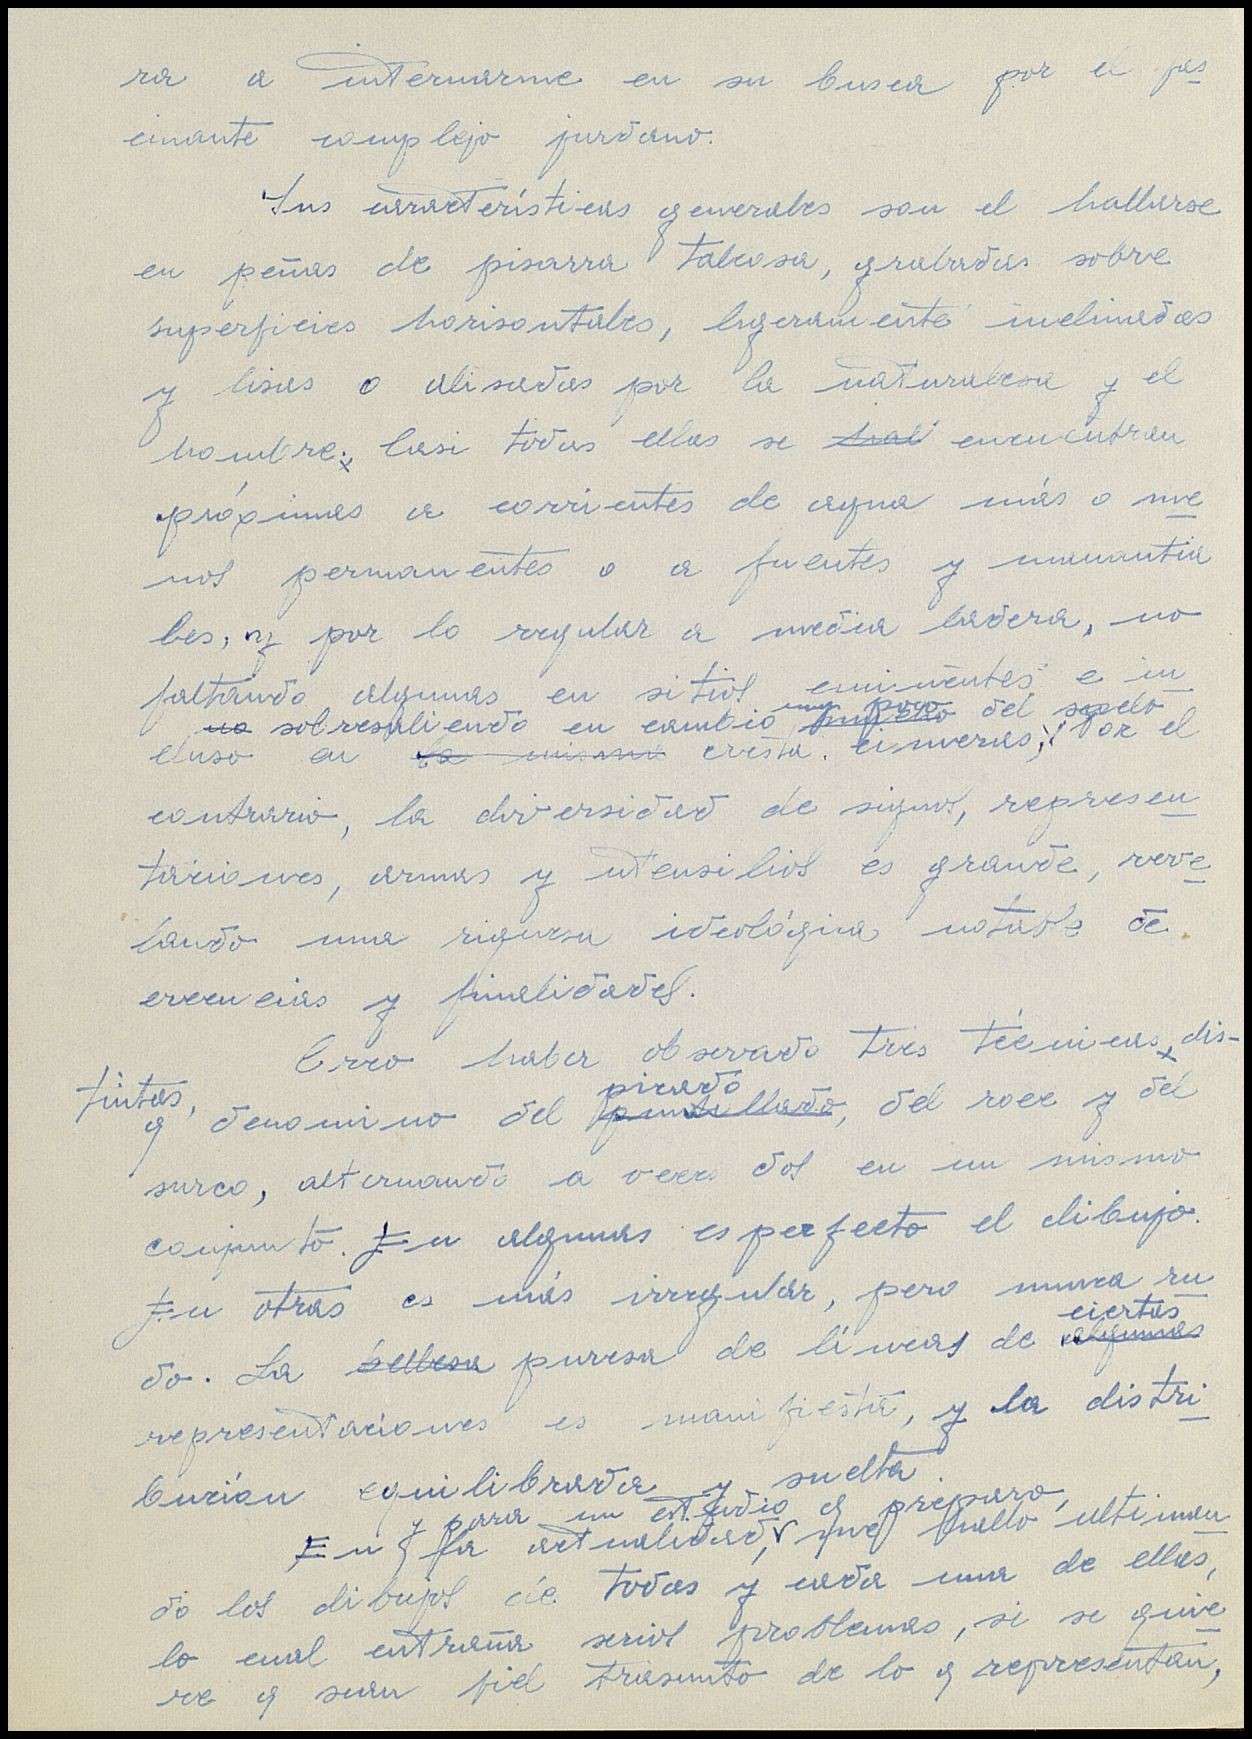 ra a internarme en su busca por el fas
cinante complejo jurdano.
Sus características generales son el hallarse
en peñas de pisarra talcosa, grabadas sobre
superficies horisontales, ligeramente inclinadas
y lisas o alisadas por la naturalesa y el
hombre. Casi todas ellas se hal encuentran
próximas a corrientes de agua más o me
nos permanentes o a fuentes y manantia
les, y por lo regular a media ladera, no
faltando algunas en sitios eminentes e in
no sobresaliendo en cambio muy poco del suelo
cluso en la misma cresta. cimeras; Por el
contrario, la diversidad de signos, represen
taciones, armas y utensilios es grande, reve
lando una riquesa ideológica notable de
creencias y finalidades.
Creo haber observado tres técnicas, dis-
tintas,
picado
q denomino del puntillado, del roce y del
surco, alternando a veces dos en un mismo
conjunto. En algunas es perfecto el dibujo.
En otras es más irregular, pero nunca ru
ciertas
do. La bellesa puresa de líneas de algunas
representaciones es manifiesta, y la distri
bución equilibrada y suelta.
y para un estudio q preparo,
En la actualidad, me hallo ultiman
do los dibujos de todas y cada una de ellas,
lo cual entraña serios problemas, si se quie
re q sean fiel trasunto de lo q representan,